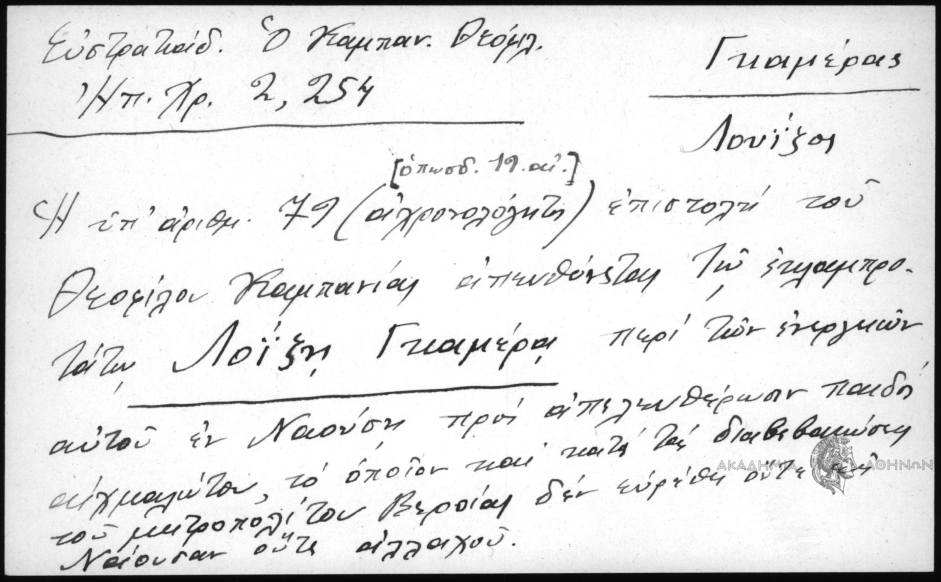 Εὐστρατιάδ. Ὁ Καμπαν. Θεόφιλ.
Ἠπ. Χρ. 2, 254
Γκαμέρας
Λουΐζος
[ὁπωσδ. 19. αἰ.]
Ἡ ὑπ' ἀριθμ. 79 (ἀχρονολόγητη) ἐπιστολὴ τοῦ
Θεοφίλου Καμπανίας ἀπευθύνεται τῷ ἐκλαμπρο-
τάτῳ Λοΐζῃ Γκαμέρᾳ περὶ τῶν ἐνεργειῶν
αὐτοῦ ἐν Ναούσῃ πρὸς ἀπελευθέρωσιν παιδὸς
αἰχμαλώτου, τὸ ὁποῖον καὶ κατὰ τὰς διαβεβαιώσεις
τοῦ μητροπολίτου Βεροίας δὲν εὑρέθη οὔτε εἰς
Νάουσαν οὔτε ἀλλαχοῦ.
ΑΚΑΔΗΜΙΑ ΑΘΗΝΩΝ